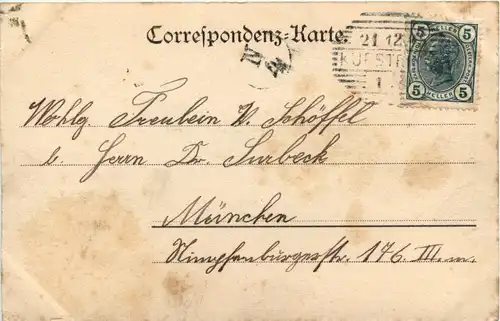 Correspondenz-Karte.
5 5
HELLER
5 5
21 12
KUFSTE
1
Wohlg. Freulein V. Schöffel
b. Herrn Dr. Surbeck
München
Nimpfenburgerstr. 176 III. m.